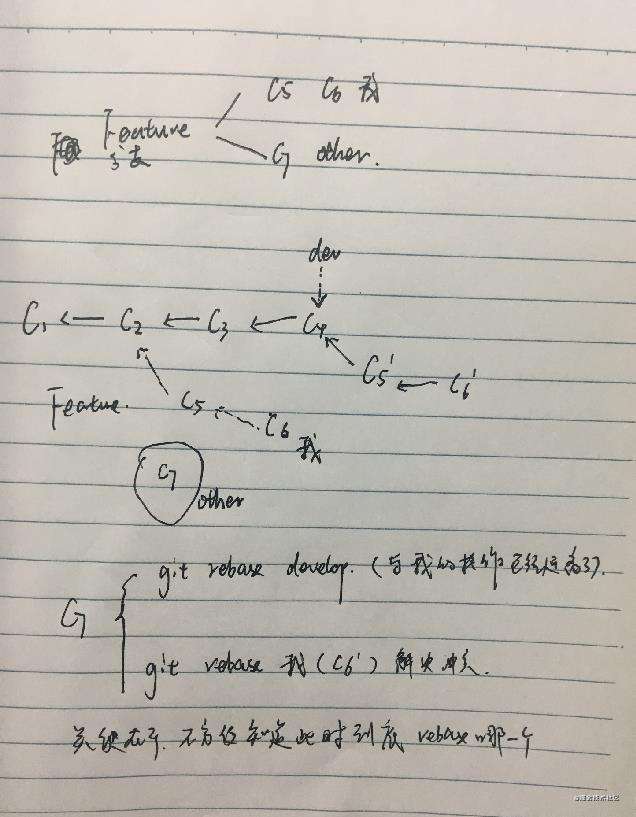 C5 C6 我
Feature
C7 other.
dev
C1 C2 C3 C4
C5' C6'
Feature.
C5
C6 我
C7
other
git rebase develop. (与我的操作已经
C7
git rebase 我 (C6') 解决冲突.
关键在于, 不方便知道此时到底 rebase 哪一个